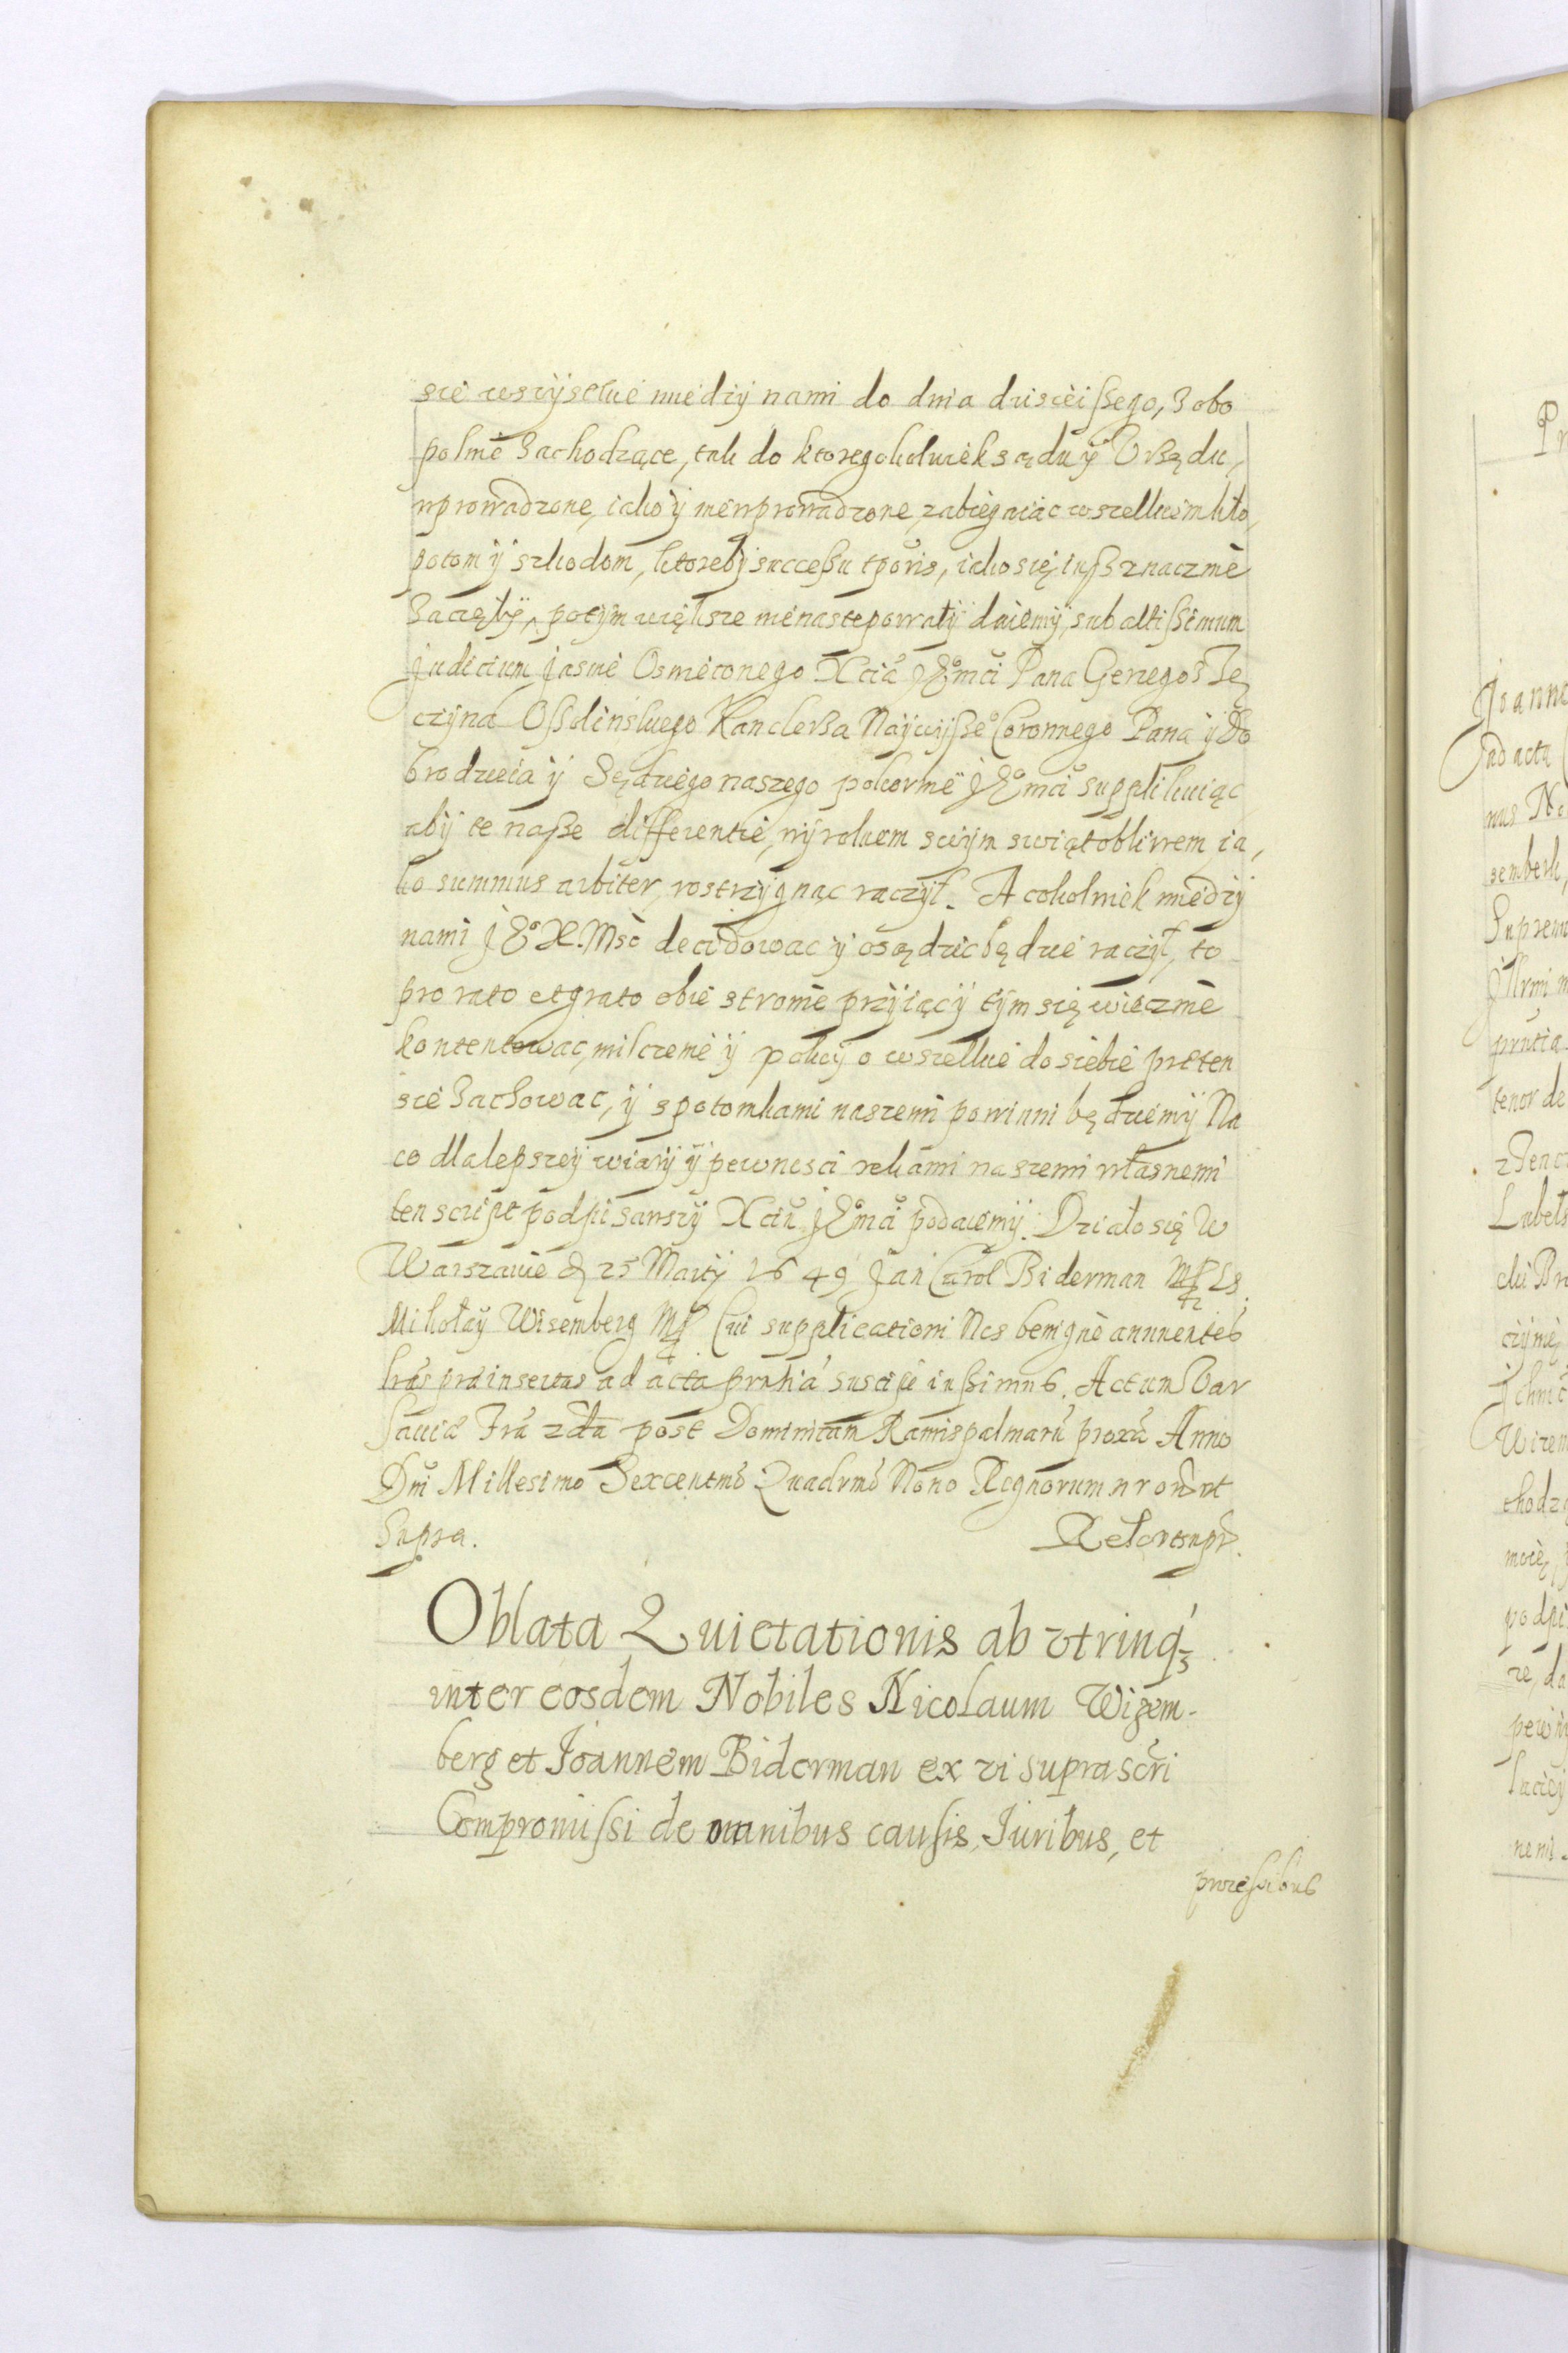 sie wszystkie miedzy nami do dnia dzisieißego, z obo
polnie zachodzące, tak do ktoregokolwiek sądu ÿ Vrzędu,
wprowadzone, iako ÿ niewprowadzone, zabiegaiąc wszelkiem kło,
potom ÿ szkodom, ktoreby successu tporis, iako się iusz znacznie
zaczęłÿ, potÿm większe nienastępowałÿ daiemÿ, sub altissimum
judicium Jasnie Oswieconego Xcia JEomci Pana Gerzego z Tę
czÿna Ossolinskiego Kanclerza Naÿwÿße Coronnego Pana ÿ Do
brodzieia ÿ Sędziego naszego pokornie JEomci supplikuiąc
abÿ te naße differentie, wÿrokiem swÿm swiątobliwem ia,
ko summus arbiter, rostrzÿgnąc raczÿł. A cokolwiek miedzÿ
nami JEo X. Msc decidowac ÿ osądzic będzie raczÿł, to
pro rato et grato obie stronie przÿiąc ÿ tÿm się wiecznie
kontentowac, milczenie ÿ pokoÿ o wszelkie do siebie preten
sie zachowac, ÿ spotomkami naszemi powinni będziemÿ Na
co dla lepszeÿ wiarÿ ÿ pewnosci rekami naszemi własnemi
ten script podpisawszÿ Xciu JEomci podaiemÿ. Działo się w
Warszawie d. 25 Martÿ 1649 Jan Carol Biderman MP Ls.
Mikołaÿ Wisemberg MP Cui supplicationi Nos benigne annuentes
lras prainsertas ad acta prntia suscipi iussimus. Actum Var
saviæ Fria 2da post Dominicam Ramispalmaru proxa Anno
Dni Millesimo Sexcentmo Quadrmo Nono Regnorum nrorum ut
Supra. Relõ ut supr.
Oblata Quietationis ab vtrinq3
inter eosdem Nobiles Nicolaum Wizem-
berg et Joannem Biderman ex vi suprascri
Compromissi de omnibus causis, Juribus, et
processibus